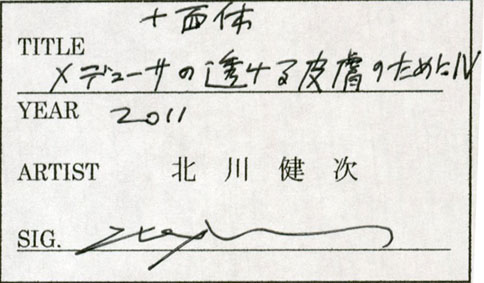 十面体
TITLE
メデューサの透ける皮膚のためにⅣ
YEAR 2011
ARTIST 北川健次
SIG.